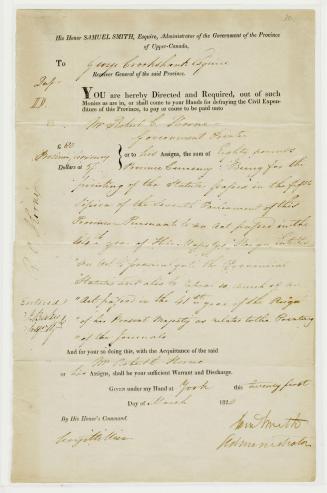 His Honor SAMUEL SMITH, Esquire, Administrator of the Government of the Province
of Upper-Canada,
To George Crookshank Esquire
Receiver General of the said Province.
YOU are hereby Directed and Required, out of such
Monies as are in, or shall come to your Hands for defraying the Civil Expen-
diture of this Province, to pay or cause to be paid unto
Mr Robert C Horne
Government Printer
or to his Assigns, the sum of Eighty pounds
Province Currency
Dollars at Province Currency Being for the
printing of the Statutes passed in the fifth
Session of the Seventh Parliament of this
Province Pursuant to an act passed in the
year of His Majestys Reign Entitled
An act to promulgate the Provincial
Statutes and also to repeal so much of an
Act passed in the 41st year of the Reign
of his Present Majesty as relates to the Printing
of the Journals
R C Horne
Entered
And for your so doing this, with the Acquittance of the said
Mr Robert C Horne
or his Assigns, shall be your sufficient Warrant and Discharge.
GIVEN under my Hand at York this twenty first
Day of March 182
By His Honor's Command.
Saml Smith
Administrator